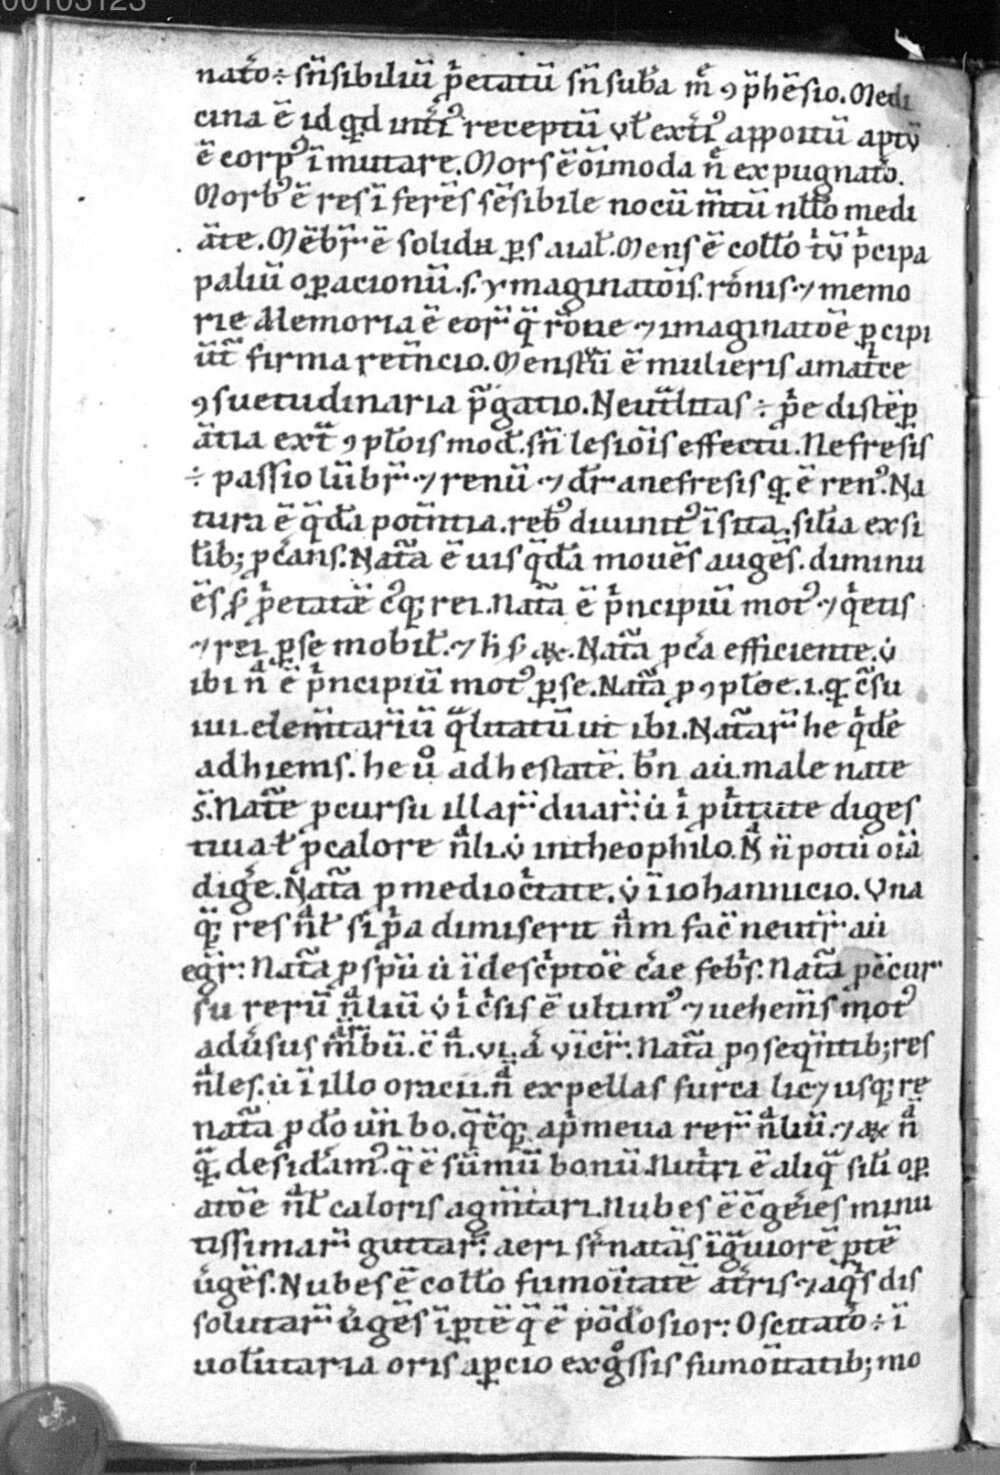 00103123
nato᷒ ÷ sn̄sibiliū p̄etatū sn̄ sub̄a m̄ ꝯp̄hēsio. Medi
cina ē id qd int᷒ receptū vł ext᷒ appoitū aptū
ē corpꝰ īmutare. Mors ē oīmoda n̄ expugnato᷒.
Morbꝰ ē res īferēs sēsibile nocūm̄tū nłło medi
āte. Mēbr̄ ē solida ꝑs aiał. Mens ē collō t̄ū p̄cipa
paliū oꝑacionū. s. ymaginatōis. rōnis. ⁊ memo
rie Memoria ē eor̄ q̄ rōne ⁊ imaginatōe ꝑcipi
ūt᷒ firma retn̄cio. Menstrū ē mulieris a matͥce
ꝯsuetudinaria p̄gatio. Neut̄litas ÷ p̄e distēꝑ
ātia ext̄ ꝯpłois mod̄. sn̄ lesiōis effectu. Nefresis
÷ passio lūbr̄ ⁊ renū ⁊ dr̄ a nefresis q. ē renꝰ. Na
tura ē q̄dā potn̄tia. rebꝰ diuinitꝰ īsita. siłia ex si
łib; pc̄ans. Nat̄a ē uis q̄dā mouēs augēs. diminu
ēs ẜ p̄etatē cꝰq; rei. Nat̄a ē p̄ncipiū motꝰ ⁊ q̄etis
⁊ rei ꝑ se mobił. ⁊ h̄ ẜ aꝝ. Nat̄a p cā efficiente. v̇
ibi n̄ ē p̄ncipiū motꝰ ꝑ se. Nat̄a p ꝯpłoe. i. q. c̄su
iiii. elem̄tariū q̄litatū ut ibi. Nat̄ar̄ he q̄dē
ad hiems. he ů ad hestatē. bn̄ aū. male nate
s̄. Nat̄e p cursu illar̄ duar̄: v̇ ī p u̇tute diges
tiua ł p calore n̄li. v̇ in theophilo. N̄ n̄ potū oīa
dig̃e. Nat̄a p mediocͥtate. v̇ ī iohannicio. Vna
q̄q; res n̄ł si p̄a dimiserit n̄m fac̄ neutr̄ aū
egr̄: Nat̄a p spū v̇ ī descͥptōe cāe febr̄s. Nat̄a pc̄ cur
su rerū n̄liū v̇ ī cͥsis ē ultimꝰ ⁊ uehem̄s motꝰ
adūsus m̄bū. c̄ n̄. vi. ā vīcr̄: Nat̄a p ꝯseqn̄tib; res
n̄les. v̇ ī illo oracii. n̄ expellas furca licꝫ usq; re
nat̄a p do ūn bo. q̄cq; apͥmeua rer̄ n̄liū. ⁊ aꝝ n̄
q̄q; desidam̄ꝰ. q̄ ē sūmū bonū. Nutͥri ē aliq̄ siłi oꝑ
atōe n̄ł caloris agm̄tari. Nubes ē c̄geries minu
tissimar̄ guttar̄: aeri sꝑnatās īg̃uiorē ꝑtē
u̇gēs. Nubes ē collō fumoītatē atͥris ⁊ aq̄s dis
solutar̄ u̇gēs ī ꝑtē q̄ ē pōdosior: Oscitato᷒ ÷ ī
uolūtaria oris aꝑcio ex g̊ssis fumoītatib; mo